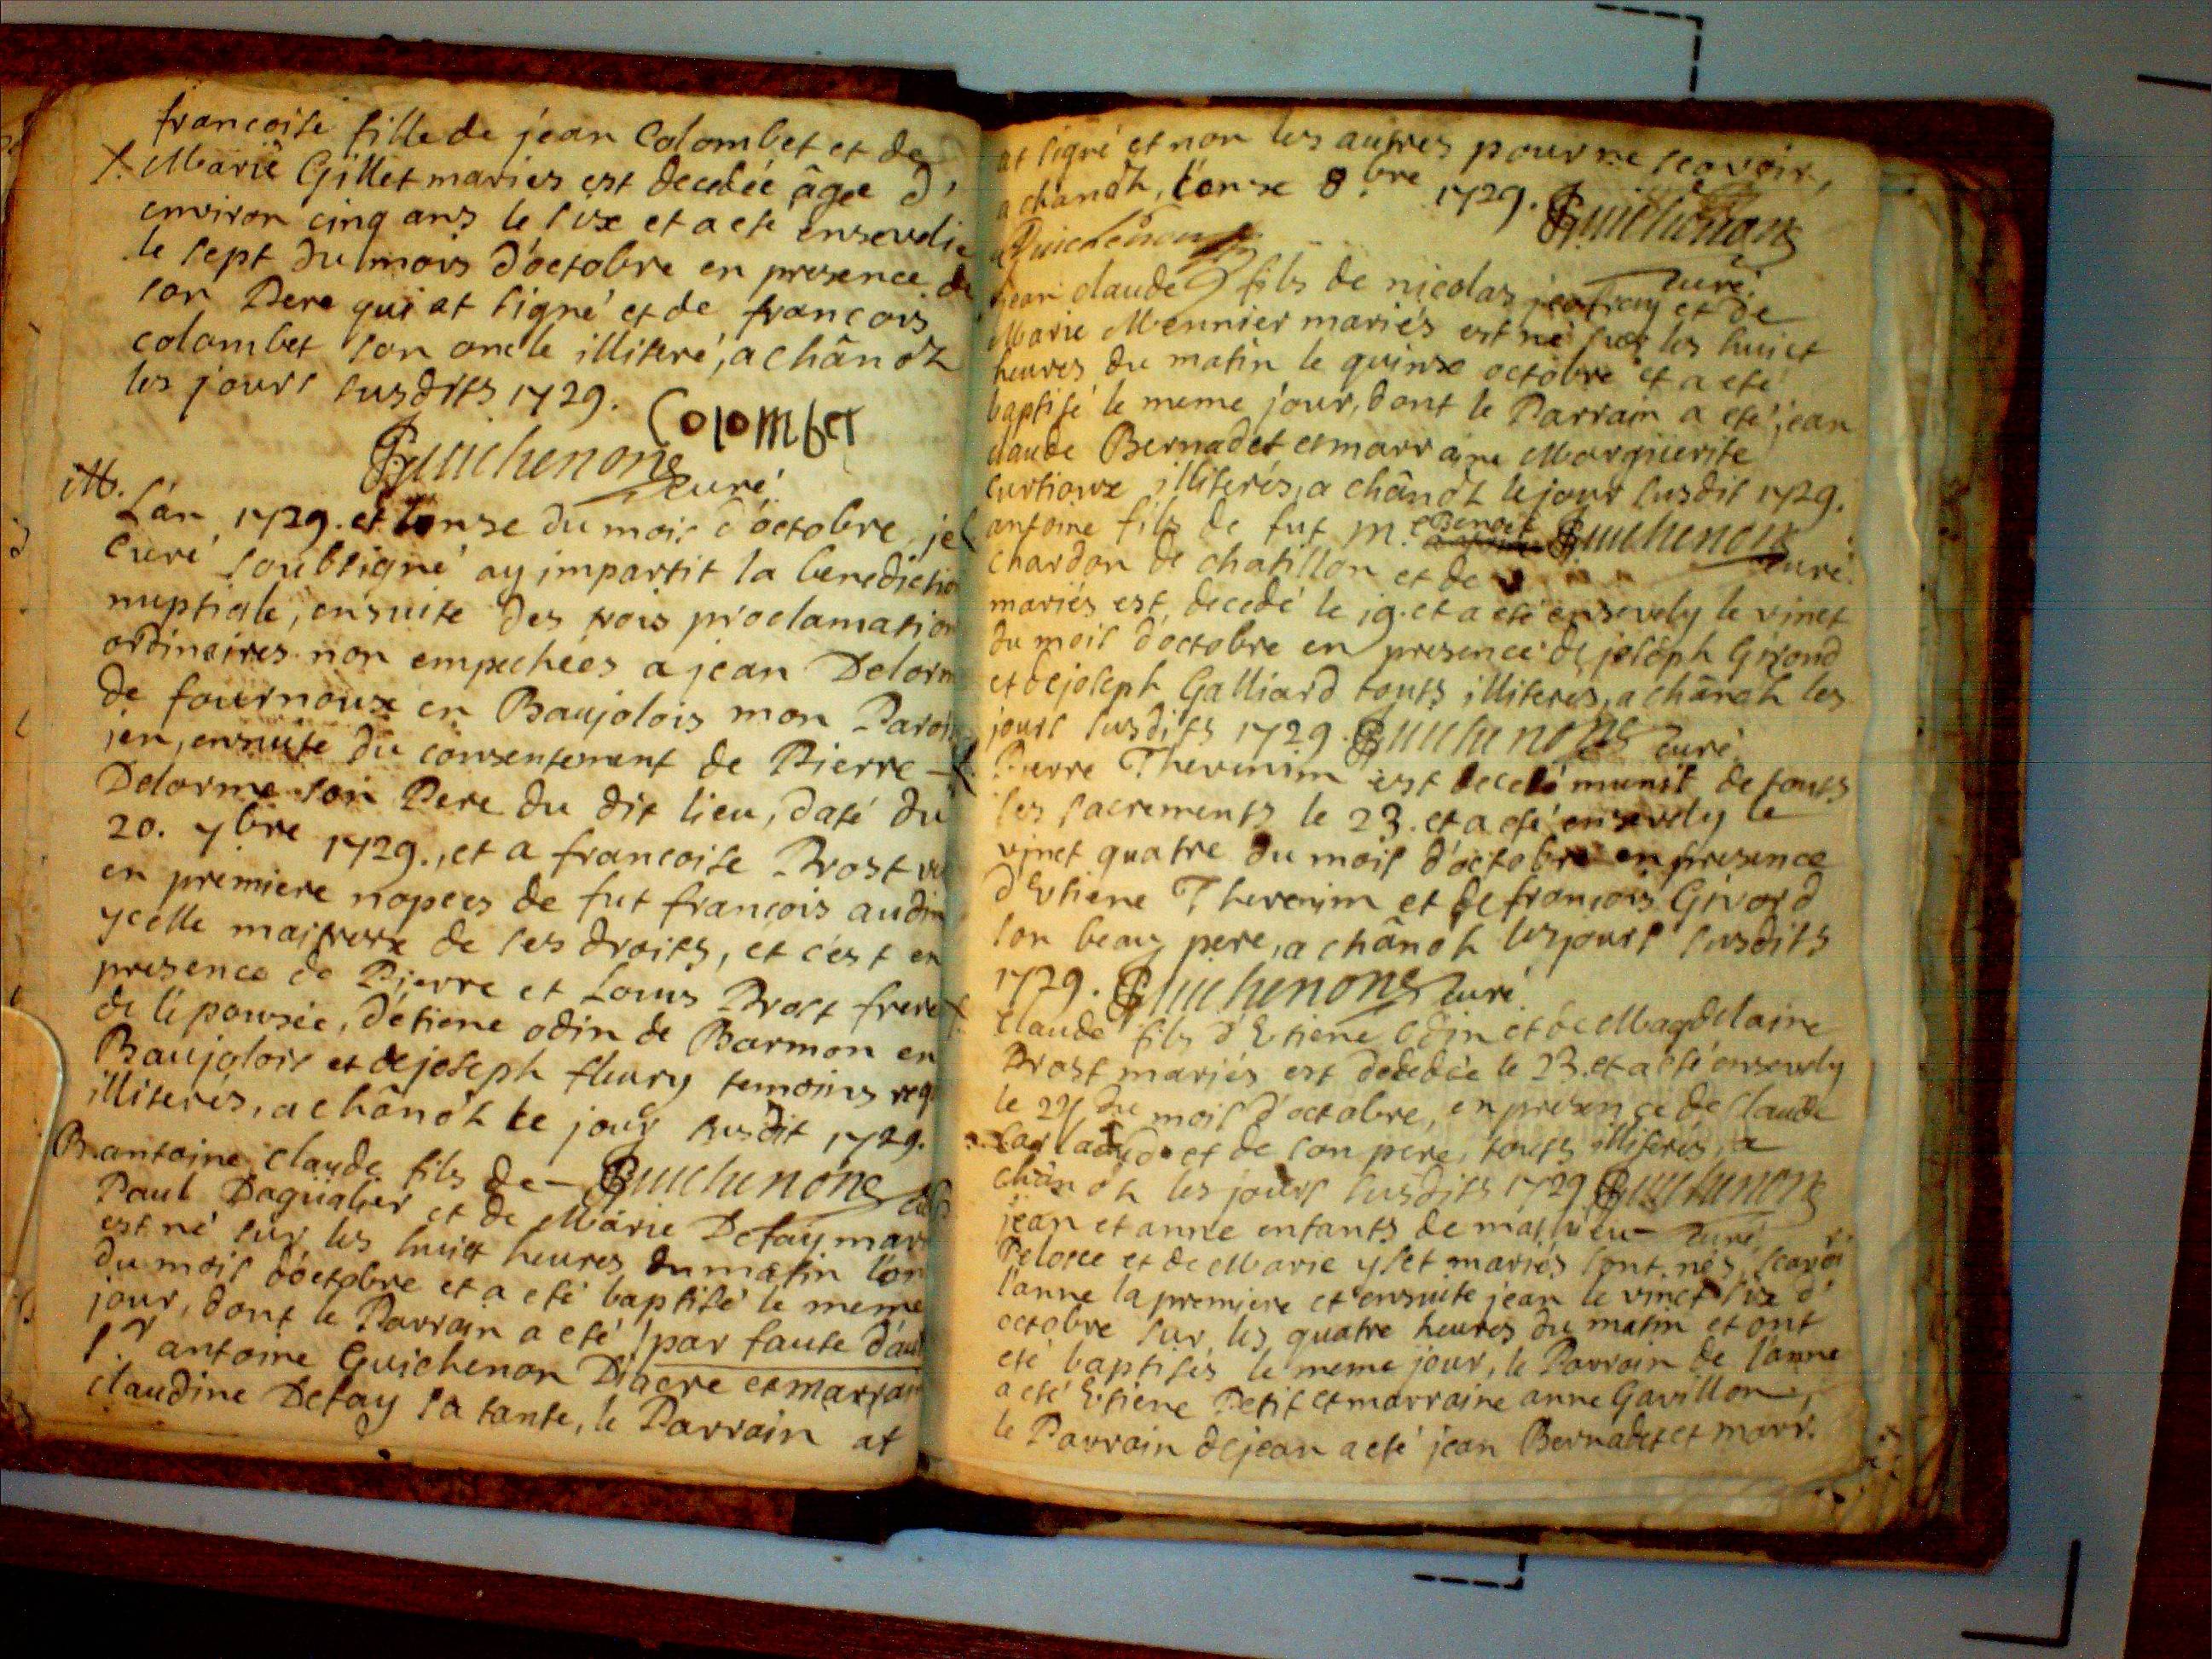 francoise fille de jean Colombet et de
Marie Gillet mariés est decedée âgée d'
environ cinq ans le six et a eté ensevelie
le sept du mois d'octobre en presence de
son Pere qui at signé et de francois
colombet son oncle illiteré, a chânoz
les jours susdits 1729.
Colombet
Guichenon curé
L'an 1729. et l'onse du mois d'octobre, je
curé soubsigné ay impartit la benediction
nuptiale, ensuite des trois proclamation
ordinaires non empechées a jean Delorm
de fournoux en Baujolois mon Paroiss
ien, ensuite du consentement de Pierre
Delorme son Pere du dit lieu, daté du
20. 7bre 1729., et a francoise Brost
en premiere nopces de fut francois audin
ycelle maitresse de ses droits, et c'est en
presence de Pierre et Louis Brost frere
de l'epousée, d'etiene odin de Barmon en
Baujolois et de joseph fleury temoins req
illiterés, a chânoz le jour susdit 1729.
B. antoine claude fils de - Guichenon
Paul Daguälier et de Marie Defay mar
est né sur les huict heures du matin l'on
du mois d'octobre et a eté baptisé le meme
jour, dont le Parrain a eté par faute d'au
sr antoine Guichenon Diacre et marrain
claudine Defay sa tante, le Parrain at
at signé et non les autres pour ne scavoir,
a chanoz, l'onse 8.bre 1729. Guichenon
Guichenon
curé
jean claude fils de nicolas et de
Marie Mennier mariés est né sur les huict
heures du matin le quinse octobre et a eté
baptisé le meme jour, dont le Parrain a eté jean
claude Bernadet et marraine Marguerite
curtioux illiterés, a chânoz le jour susdit 1729.
antoine fils de fut m.e Benoit Guichenon
chardon de chatillon et de curé.
mariés est decedé le 19. et a eté ensevely le vinct
du mois d'octobre en presence de joseph Girond
et de joseph Galliard touts illiteres, a chânoz les
jours susdits 1729. Guichenon curé
Pierre Thevenim est decedé munit de touts
les sacrements le 23. et a eté ensevely le
vinct quatre du mois d'octobre en presence
d'Etiene Thevenim et de francois Givord
son beau pere, a chânoz les jours susdits
1729. Guichenon curé
Claude fils d'Etiene Odin et de Magdelaine
Brost mariés est decedée le 23. et a eté ensevely
le du mois d'octobre, en presence de Claude
et de son pere, touts illiterés, a
chânoz les jours susdits 1729. Guichenon
jean et anne enfants de mathieu curé
Pelosse et de Marie yset mariés sont nés, scavoir
l'anne la premiere et ensuite jean le vinct six d'
octobre sur les quatre heures du matin et ont
eté baptisés le meme jour, le Parrain de l'anne
a eté Etiene Petit et marraine anne Gavillon,
le Parrain de jean a eté jean Bernadet et marr.